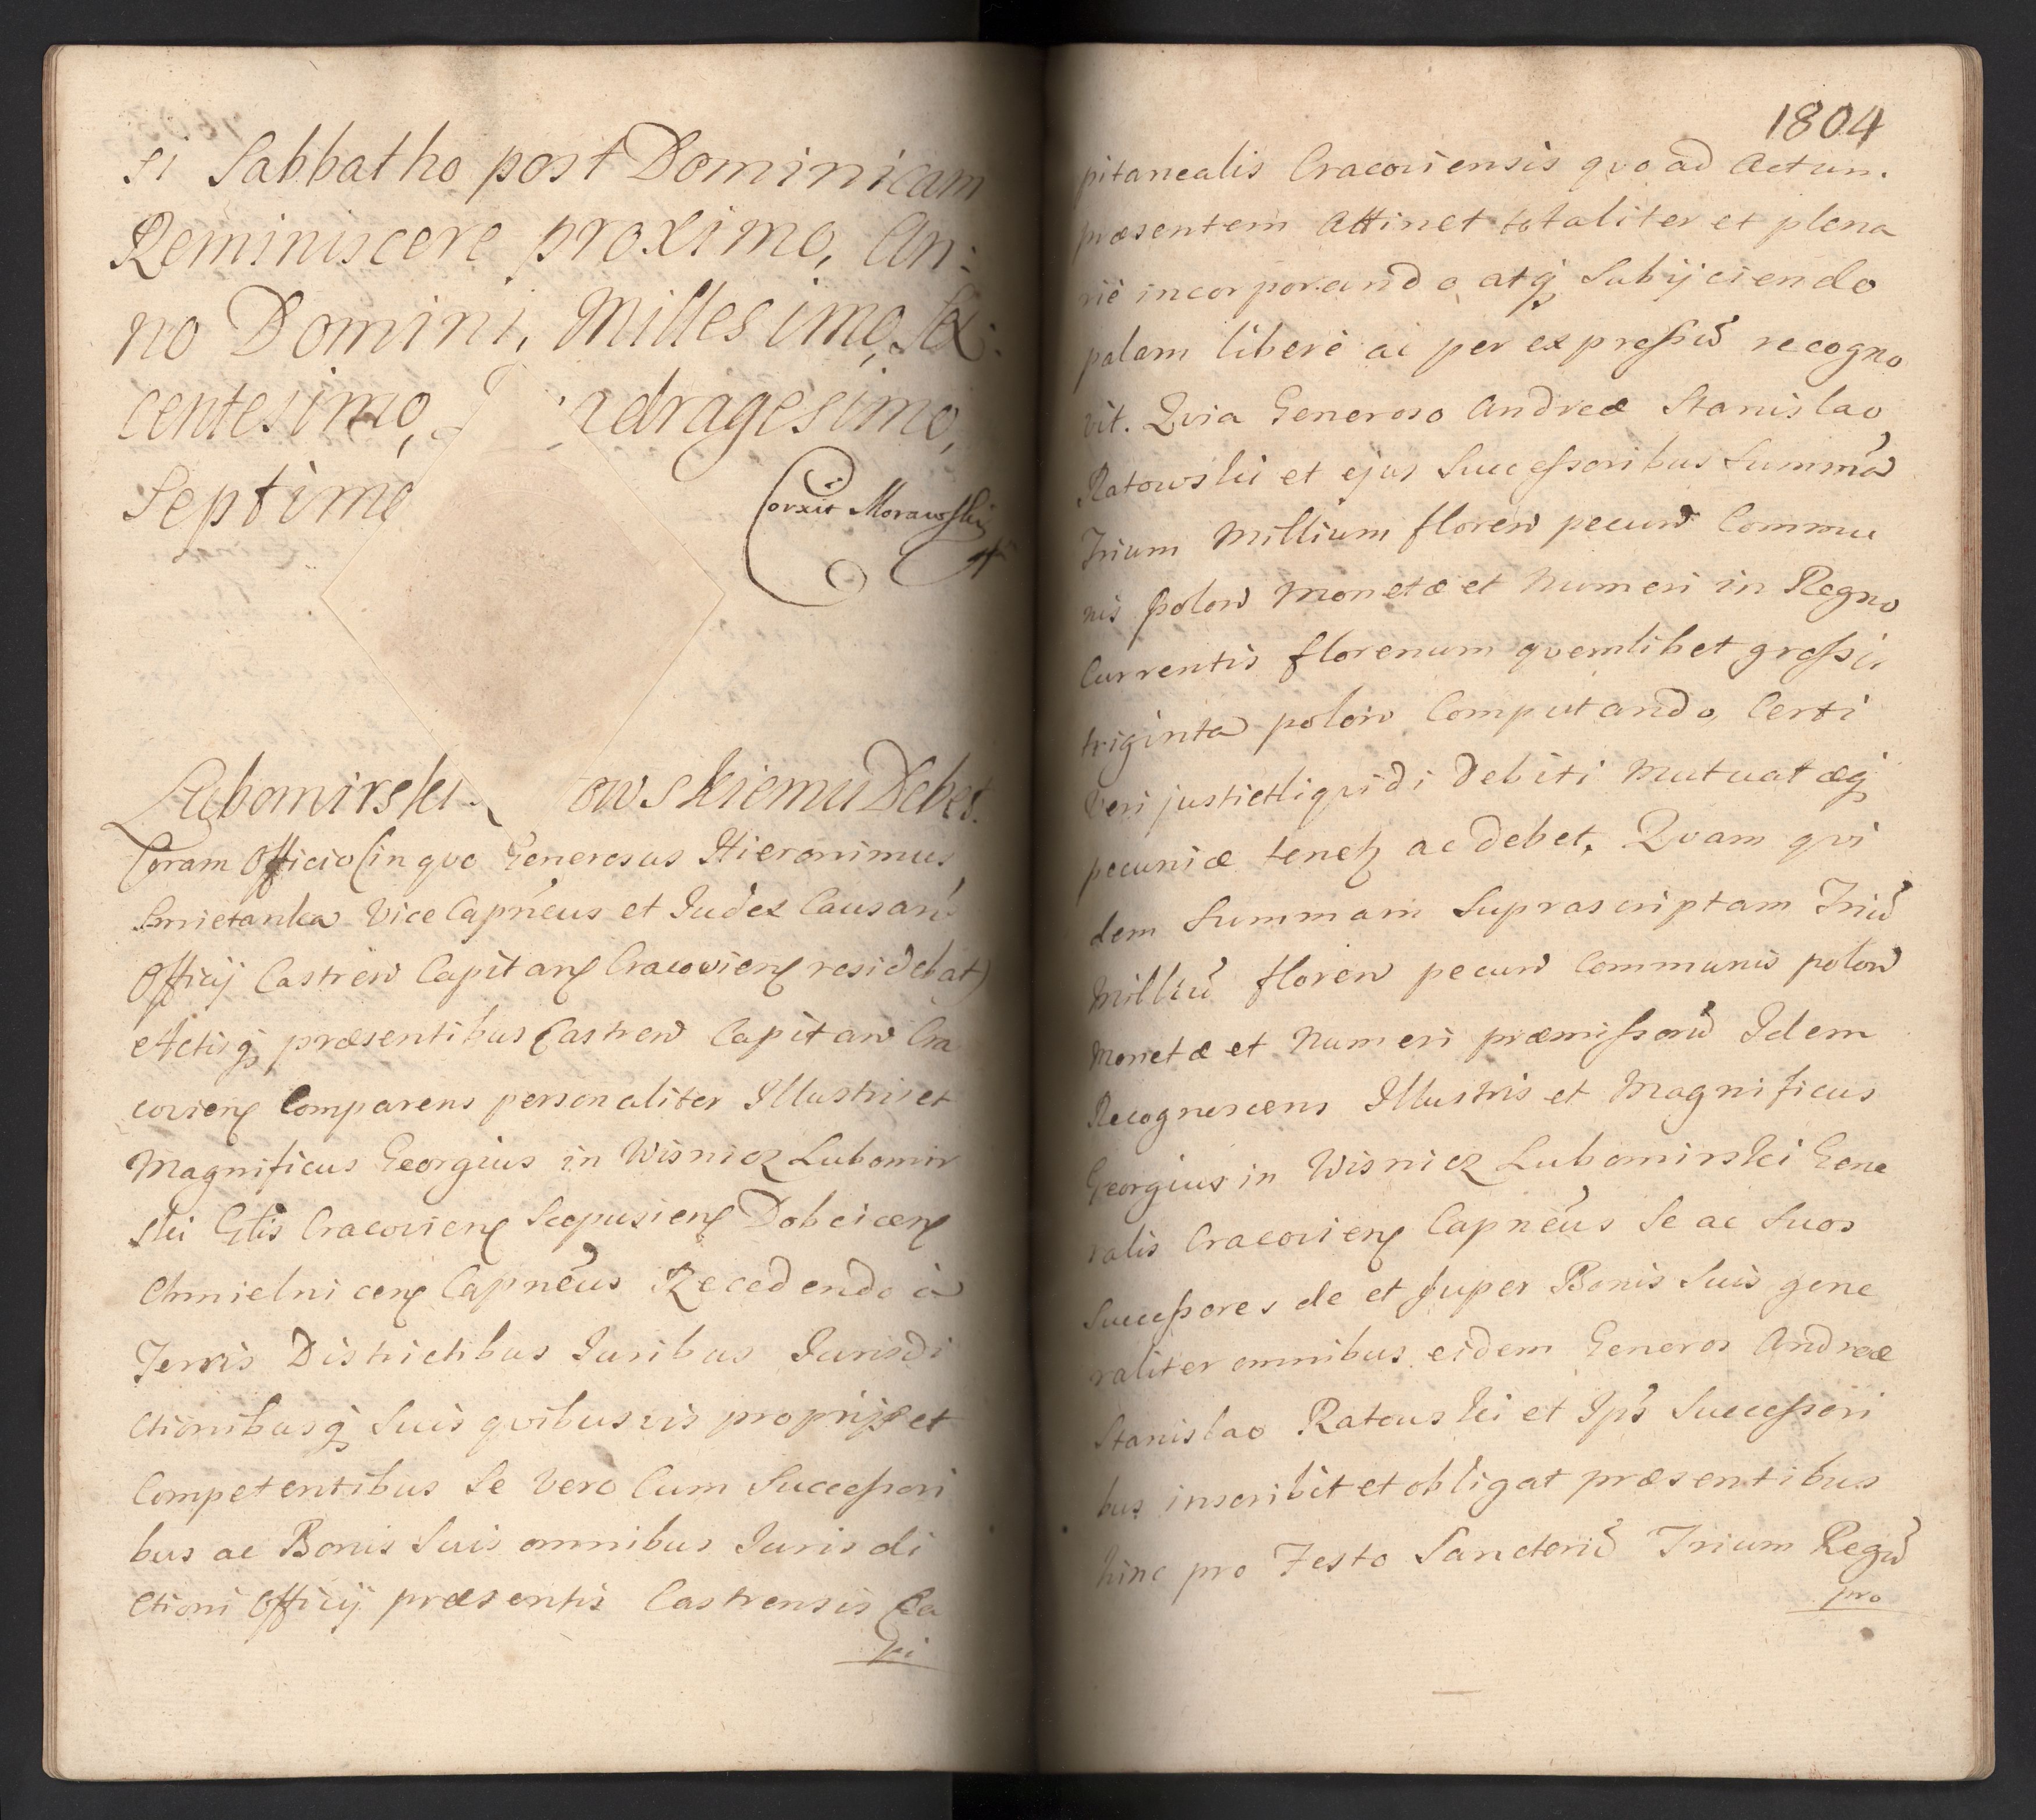 si Sabbatho post Dominicam
Reminiscere proximo, An:
no Domini, Millesimo, Sex:
centesimo, adragesimo,
Septimo
Corxit Morawski
Lubomirski owskiemu Debet.
Coram Officio (in qvo Generosus Hieronimus
Smietanka Vice Capneus et Judex Causarũ
Officij Castren Capitan Cracovien residebat)
Actisq præsentibus Castren Capitan Cra
covien Comparens personaliter Illustris et
Magnificus Georgius in Wisnicz Lubomir
ski Glis Cracovien Scepusien Dobcicen
Chmielnicen Capneus Recedendo à
Terris Districtibus Juribus Jurisdi
ctionibusq Suis qvibusvis proprijs et
Competentibus Se vero Cum Successori
bus ac Bonis Suis omnibus Jurisdi
ctioni Officij præsentis Castrensis Ca
pi
1804
pitanealis Cracoviensis qvo ad Actum
præsentem Attinet totaliter et plena
riè incorporando atq Subijciendo
palam liberè ac per expressũ recogno
vit. Qvia Generoso Andreæ Stanislao
Ratowski et ejus Successoribus Summã
Trium Millium floren pecun Commu
nis polon Monetæ et Numeri in Regno
Currentis florenum qvemlibet grossis
triginta polon Computando, Certi
veri justi et liqvidi Debiti Mutuatæq
pecuniæ tenet ac debet. Qvam qvi
dem Summam Suprascriptam Triũ
Milliũ floren pecun Communis polon
Monetæ et Numeri præmissorũ Idem
Recognoscens Illustris et Magnificus
Georgius in Wisnicz Lubomirski Gene
ralis Cracovien Capneus Se ac Suos
Successores de et Super Bonis Suis gene
raliter omnibus eidem Generos Andreæ
Stanislao Ratowski et Ips Successori
bus inscribit et obligat præsentibus
hinc pro Festo Sanctorũ Trium Regũ
pro